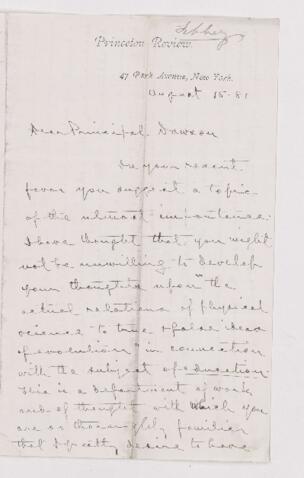 Libbey
Princeton Review.
47 Park Avenue, New York.
August 15-81
Dear Principal Dawson
In your recent
favor you suggest a topic
of the utmost importance.
I have thought that you might
not be unwilling to develop
your thoughts upon "the
actual relations of physical
science to true & false ideas
of evolution" in connection
with the subject of
This is a department of work
and of thought with which you
are so thoroughly familiar
that I greatly desire to have